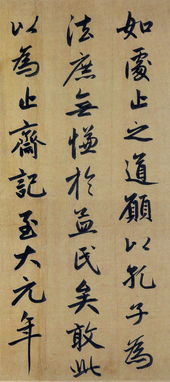 如處止之道願以孔子為
法庶無愧於益民矣敢以此
以為止齋記至大元年